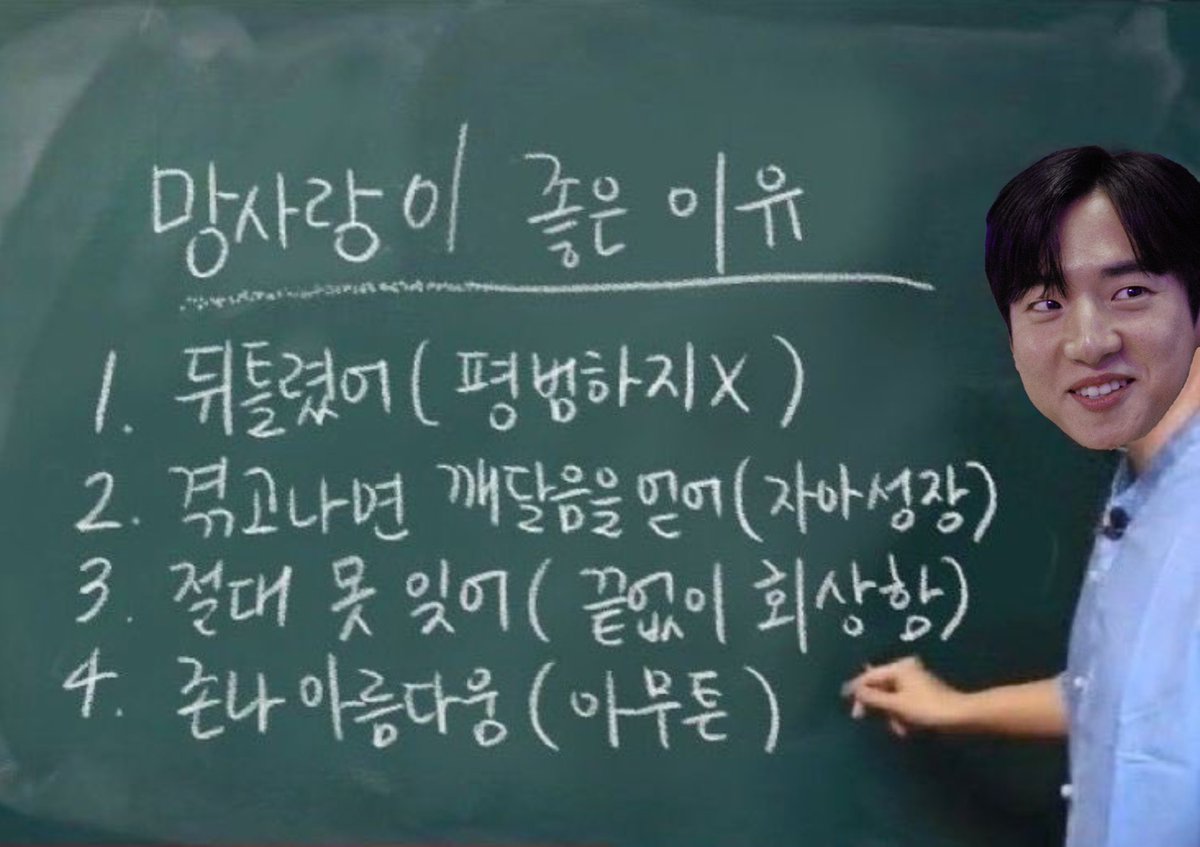 망사랑이 좋은 이유
1. 뒤틀렸어 ( 평범하지X )
2. 겪고나면 깨달음을 얻어 (자아성장)
3. 절대 못 잊어 ( 끝없이 회상함)
4. 존나 아름다움 ( 아무튼 )